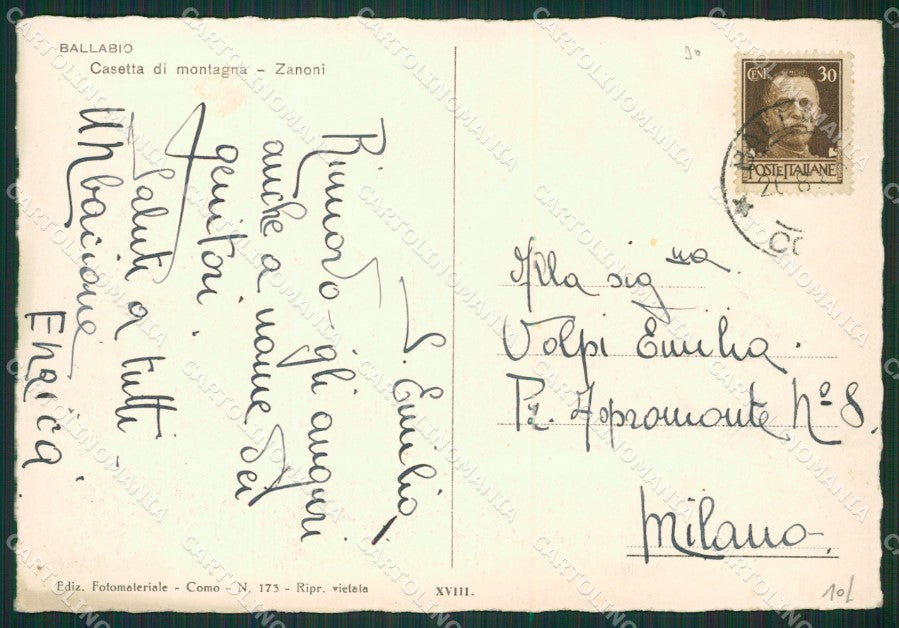 BALLABIO
Casetta di montagna - Zanoni
S. Emilia,
Rinnovo gli auguri
anche a nome dei
genitori.
Saluti a tutti.
Un bacione
Enrica.
CENT. 30
POSTE ITALIANE
Alla sig.na
Volpi Emilia.
Pz. Aspromonte Nº 8.
Milano.
Ediz. Fotomateriale - Como - N. 173 - Ripr. vietata
XVIII.
CARTOLINOMANIA